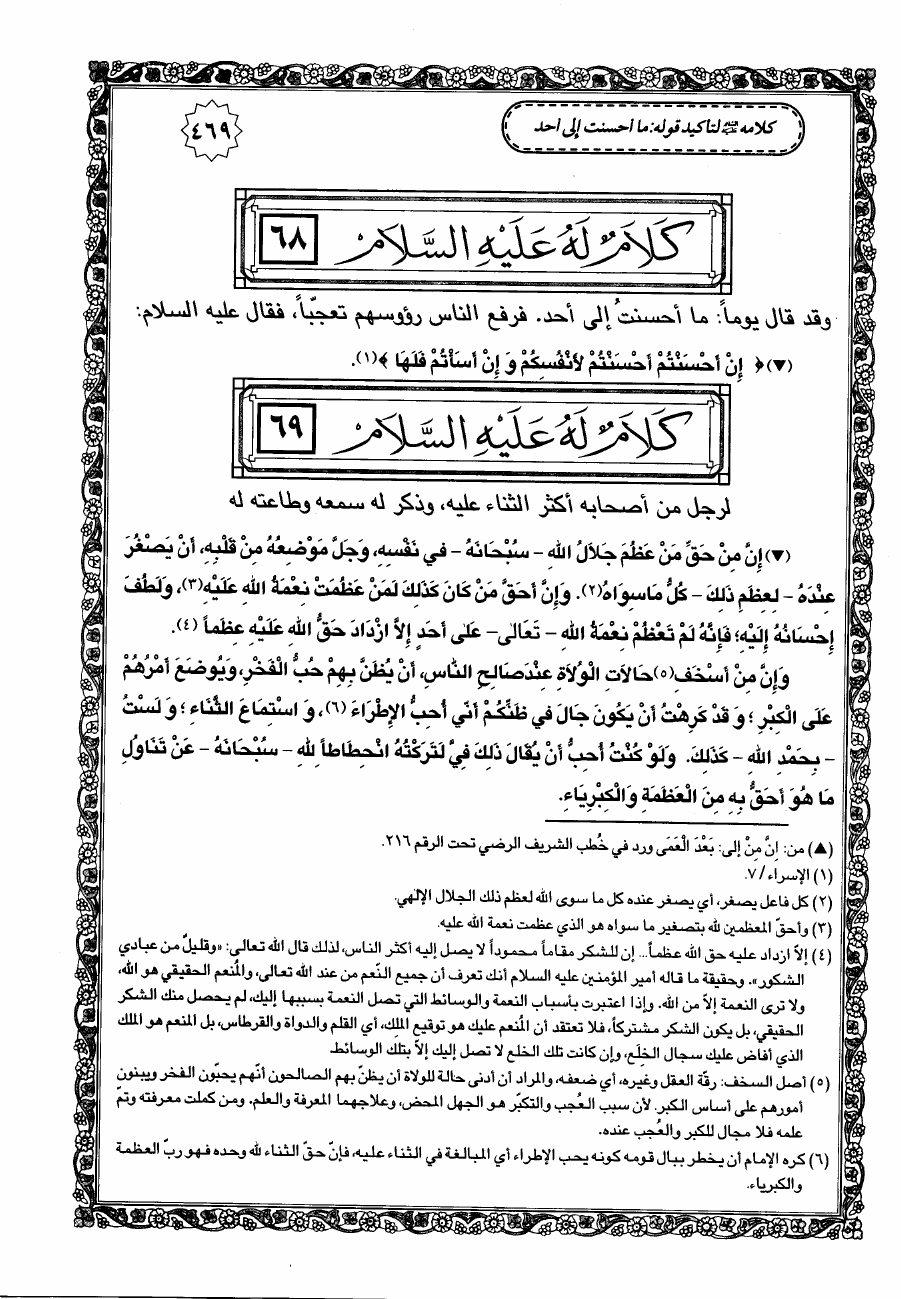 كلامه عليه السلام لتأكيد قوله: ما أحسنت إلى أحد
٤٦٩
كَلَامٌ لَهُ عَلَيْهِ السَّلَامُ
٦٨
وقد قال يوماً: ما أحسنتُ إلى أحد. فرفع الناس رؤوسهم تعجّباً، فقال عليه السلام:
(▼)﴿ إِنْ أَحْسَنْتُمْ أَحْسَنْتُمْ لأَنْفُسِكُمْ وَ إِنْ أَسَأْتُمْ فَلَهَا ﴾(١).
كَلَامٌ لَهُ عَلَيْهِ السَّلَامُ
٦٩
لرجل من أصحابه أكثر الثناء عليه، وذكر له سمعه وطاعته له
(▼)إِنَّ مِنْ حَقِّ مَنْ عَظُمَ جَلاَلُ اللهِ - سُبْحَانَهُ - في نَفْسِهِ، وَجَلَّ مَوْضِعُهُ مِنْ قَلْبِهِ، أَنْ يَصْغُرَ
عِنْدَهُ - لِعِظَمِ ذَلِكَ - كُلُّ مَاسِوَاهُ(٢). وَإِنَّ أَحَقَّ مَنْ كَانَ كَذَلِكَ لَمَنْ عَظُمَتْ نِعْمَةُ اللهِ عَلَيْهِ(٣)، وَلَطُفَ
إِحْسَانُهُ إِلَيْهِ؛ فَإِنَّهُ لَمْ تَعْظُمْ نِعْمَةُ اللهِ - تَعَالَى- عَلَى أَحَدٍ إِلاَّ ازْدَادَ حَقُّ اللهِ عَلَيْهِ عِظَماً (٤).
وَإِنَّ مِنْ أَسْخَفِ(٥)حَالاَتِ الْوُلاَةِ عِنْدَصَالِحِ النَّاسِ، أَنْ يُظَنَّ بِهِمْ حُبُّ الْفَخْرِ، وَيُوضَعَ أَمْرُهُمْ
عَلَى الْكِبْرِ ؛ وَ قَدْ كَرِهْتُ أَنْ يَكُونَ جَالَ في ظَنِّكُمْ أَنِّي أُحِبُّ الإِطْرَاءَ (٦)، وَ اسْتِمَاعَ الثَّنَاءِ ؛ وَ لَسْتُ
- بِحَمْدِ اللهِ - كَذَلِكَ. وَلَوْ كُنْتُ أُحِبُّ أَنْ يُقَالَ ذَلِكَ فِيَّ لَتَرَكْتُهُ انْحِطَاطاً لِلهِ - سُبْحَانَهُ - عَنْ تَنَاوُلِ
مَا هُوَ أَحَقُّ بِهِ مِنَ الْعَظَمَةِ وَالْكِبْرِيَاءِ.
(▲) من: إِنَّ مِنْ إلى: بَعْدَ الْعَمَى ورد في خُطب الشريف الرضي تحت الرقم ٢١٦.
(١) الإسراء/٧.
(٢) كل فاعل يصغر، أي يصغر عنده كل ما سوى الله لعظم ذلك الجلال الإلهي.
(٣) وأحقّ المعظمين لله بتصغير ما سواه هو الذي عظمت نعمة الله عليه.
(٤) إلاّ ازداد عليه حق الله عظماً... إن للشكر مقاماً محموداً لا يصل إليه أكثر الناس، لذلك قال الله تعالى: «وقليلٌ من عبادي
الشكور». وحقيقة ما قاله أمير المؤمنين عليه السلام أنك تعرف أن جميع النعم من عند الله تعالى، والمُنعم الحقيقي هو الله،
ولا ترى النعمة إلاّ من الله. وإذا اعتبرت بأسباب النعمة والوسائط التي تصل النعمة بسببها إليك، لم يحصل منك الشكر
الحقيقي، بل يكون الشكر مشتركاً، فلا تعتقد أن المُنعم عليك هو توقيع الملِك، أي القلم والدواة والقرطاس، بل المنعم هو الملك
الذي أفاض عليك سجال الخِلَع، وإن كانت تلك الخلع لا تصل إليك إلاّ بتلك الوسائط.
(٥) أصل السخف: رقّة العقل وغيره، أي ضعفه، والمراد أن أدنى حالة للولاة أن يظنّ بهم الصالحون أنّهم يحبّون الفخر ويبنون
أمورهم على أساس الكبر. لأن سبب العُجب والتكبّر هو الجهل المحض، وعلاجهما المعرفة والعلم. ومن كملت معرفته وتمّ
علمه فلا مجال للكبر والعُجب عنده.
(٦) كره الإمام أن يخطر ببال قومه كونه يحب الإطراء أي المبالغة في الثناء عليه، فإنّ حقّ الثناء لله وحده فهو ربّ العظمة
والكبرياء.